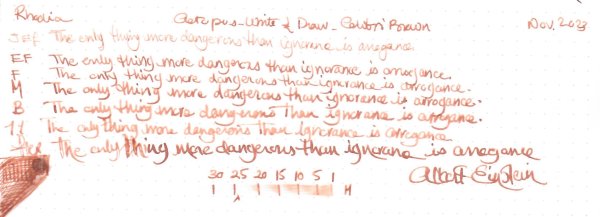 Rhodia Octopus-Write & Draw-Colibri Brown Nov. 2023
JEF The only thing more dangerous than ignorance is arrogance.
EF The only thing more dangerous than ignorance is arrogance.
F The only thing more dangerous than ignorance is arrogance.
M The only thing more dangerous than ignorance is arrogance.
B The only thing more dangerous than ignorance is arrogance.
1.1 The only thing more dangerous than ignorance is arrogance
the only thing more dangerous than ignorance is arrogance
Albert Einstein
30 25 20 15 10 5 1
M